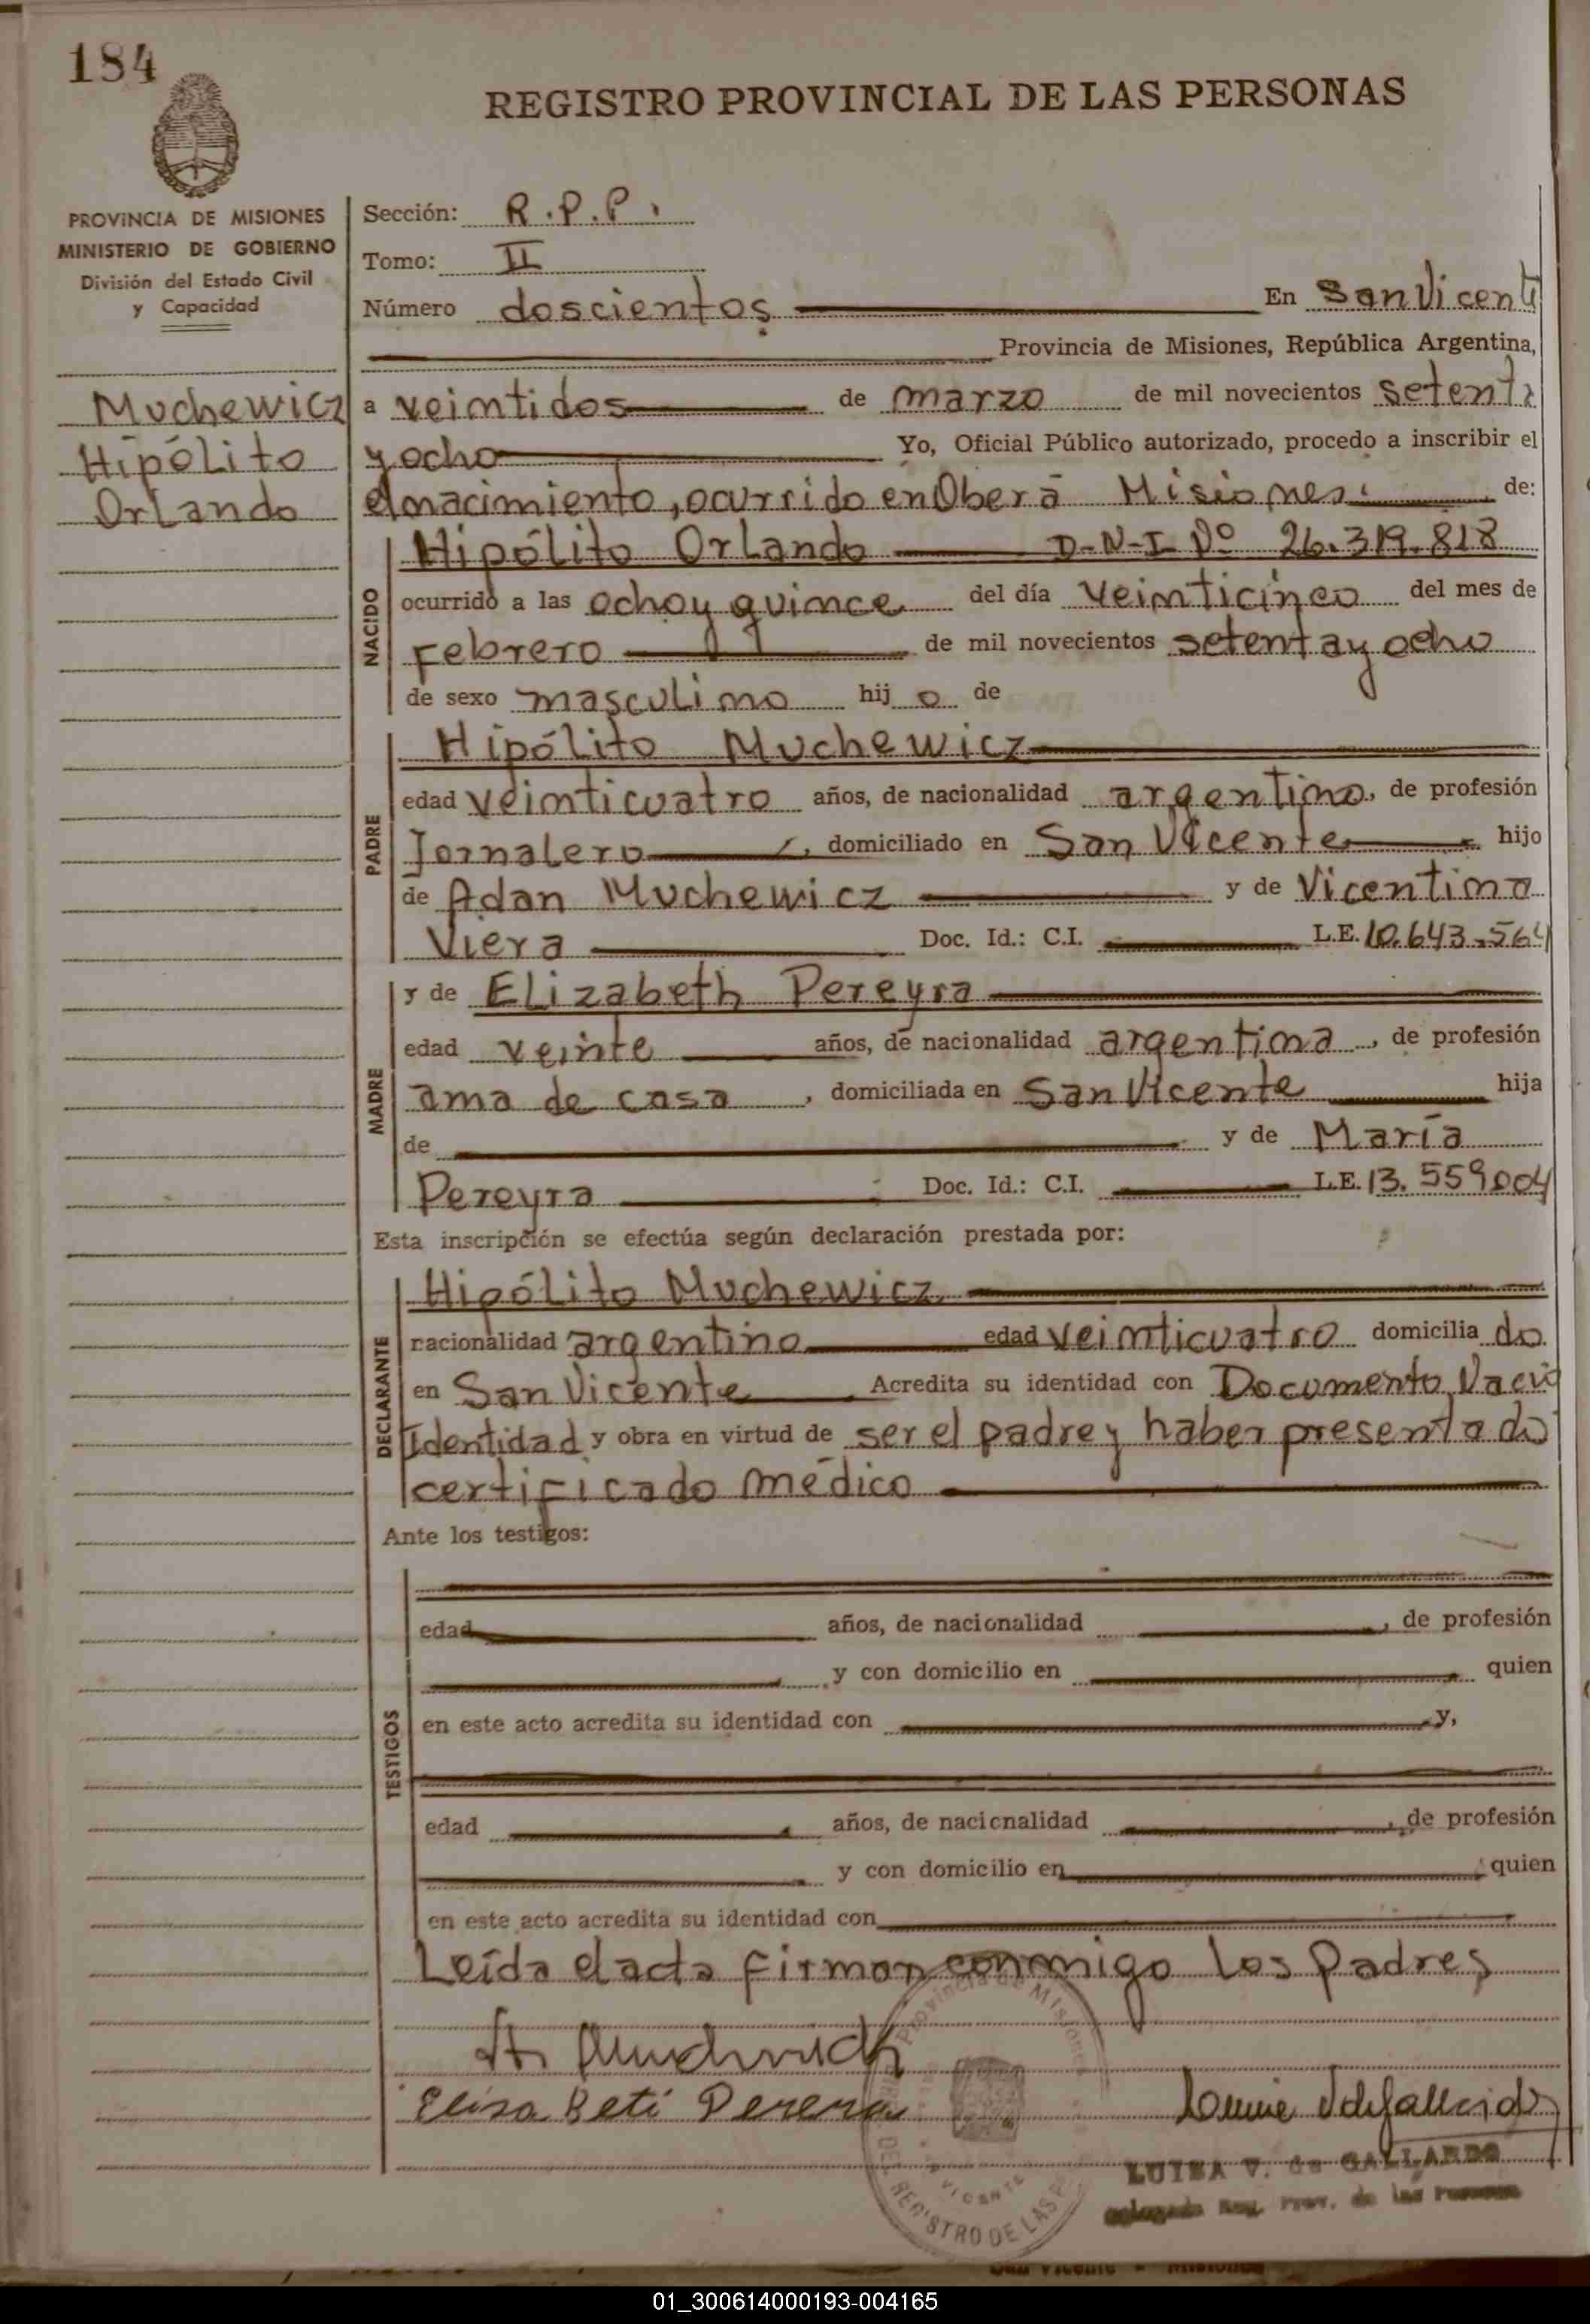 184
REGISTRO PROVINCIAL DE LAS PERSONAS
PROVINCIA DE MISIONES
MINISTERIO DE GOBIERNO
División del Estado Civil
y Capacidad
Muchewicz
Hipólito
Orlando
Sección: R.P.P.
Tomo: II
Número doscientos En San Vicente
Provincia de Misiones, República Argentina,
a veintidos de marzo de mil novecientos setenta
y ocho Yo, Oficial Público autorizado, procedo a inscribir el
el nacimiento, ocurrido en Oberá Misiones. de:
NACIDO
Hipólito Orlando D-N-I Nº 26.319.818
ocurrido a las ocho y quince del día veinticinco del mes de
Febrero de mil novecientos setenta y ocho
de sexo masculino hij o de
PADRE
Hipólito Muchewicz
edad veinticuatro años, de nacionalidad argentino, de profesión
Jornalero, domiciliado en San Vicente hijo
de Adan Muchewicz y de Vicentina
Viera Doc. Id.: C.I. L.E. 10.643.564
MADRE
y de Elizabeth Pereyra
edad veinte años, de nacionalidad argentina, de profesión
ama de casa, domiciliada en San Vicente hija
de y de María
Pereyra Doc. Id.: C.I. L.E. 13.559004
Esta inscripción se efectúa según declaración prestada por:
DECLARANTE
Hipólito Muchewicz
nacionalidad argentino edad veinticuatro domicilia do
en San Vicente Acredita su identidad con Documento Nacio
Identidad y obra en virtud de ser el padre y haber presentado
certificado médico
Ante los testigos:
TESTIGOS
edad años, de nacionalidad , de profesión
y con domicilio en quien
en este acto acredita su identidad con y,
edad años, de nacionalidad , de profesión
y con domicilio en quien
en este acto acredita su identidad con
Leída el acta firman conmigo los padres
Elisa Beti Perera
LUISA V. de GALLARDO
Delegada Reg. Prov. de las Personas
Provincia de Misiones
REGISTRO DE LAS P
San Vicente - Misiones
01_300614000193-004165